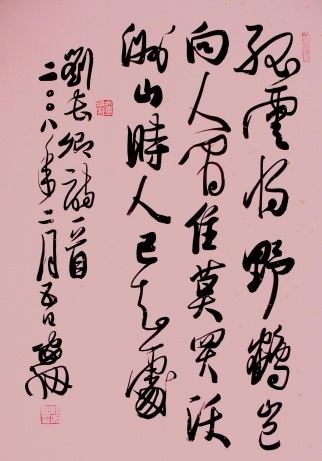 孤雲将野鶴豈
向人間住莫買沃
洲山時人已知處
劉長卿詩一首
二〇〇八年二月